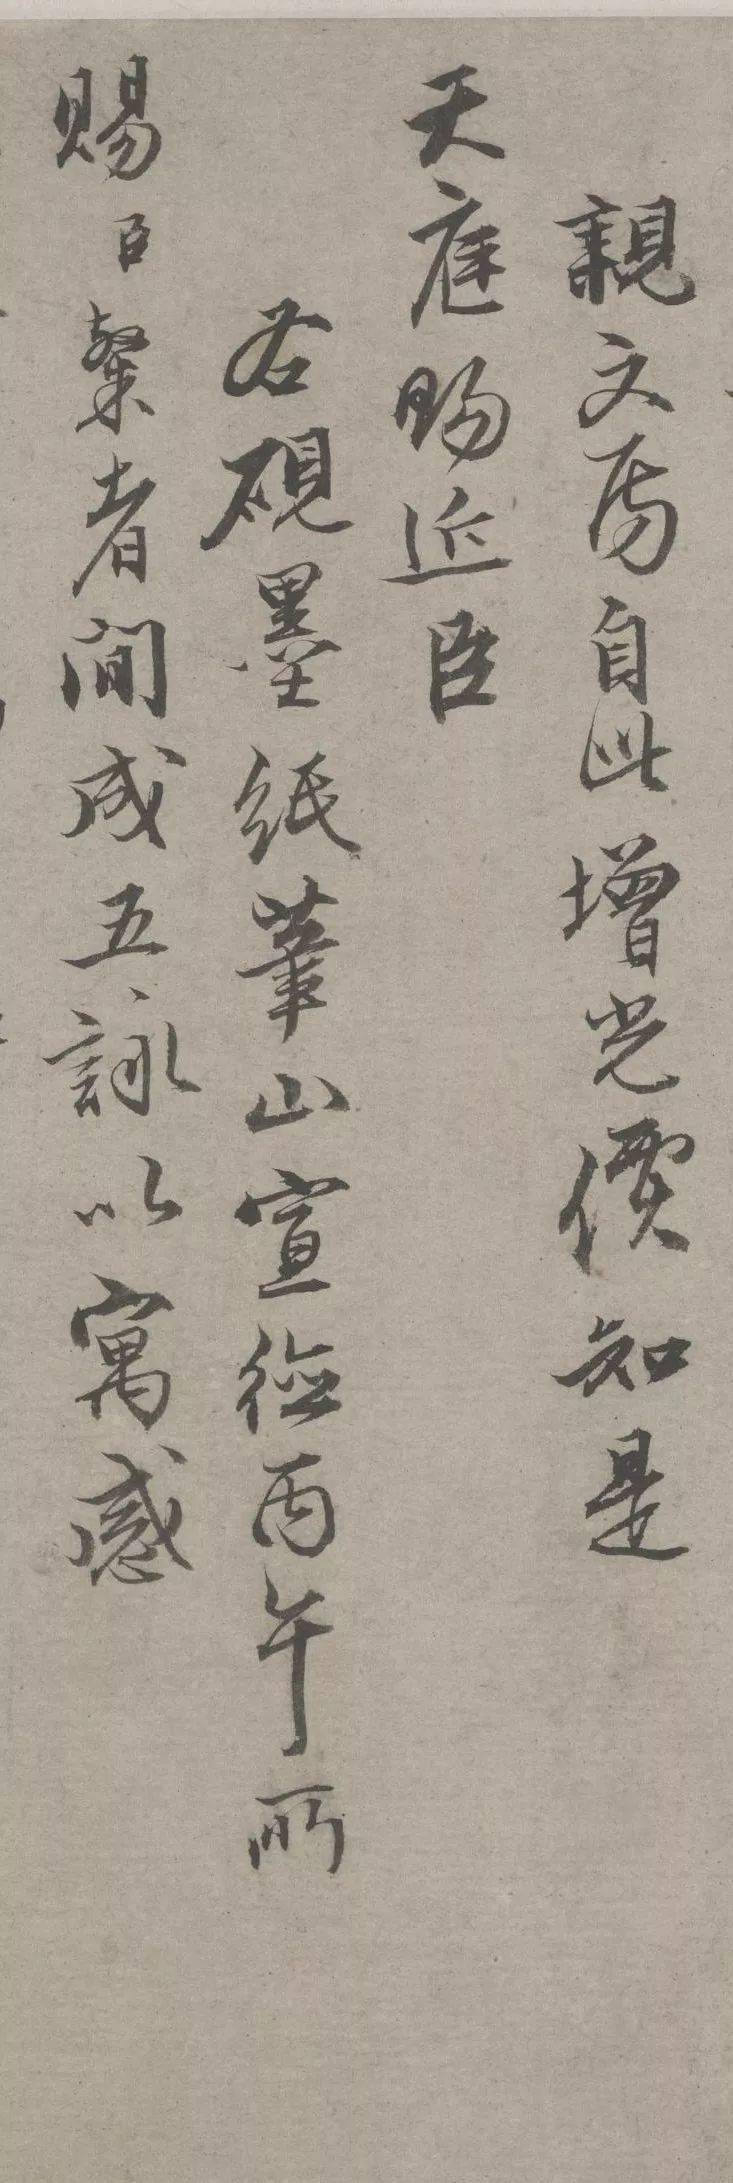 親文房自此增光價知是
天庭賜近臣
右硯墨紙筆山宣德丙午所
賜臣粲者間成五詠以寓感